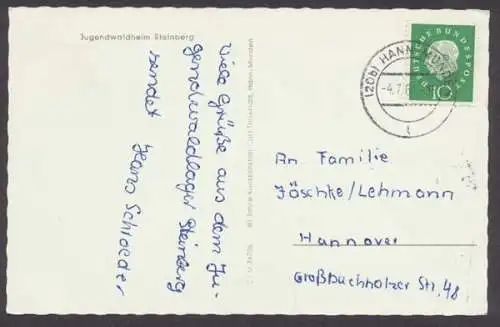 Jugendwaldheim Steinberg
Viele Grüße aus dem Ju-
gendwaldlager Steinberg
sendet Hans Schroeder
DEUTSCHE BUNDESPOST
10
(20b) HANN. MÜNDEN
-4.7.6
t
An Familie
Jäschke/Lehmann
Hannover
Großbuchholzer Str. 48